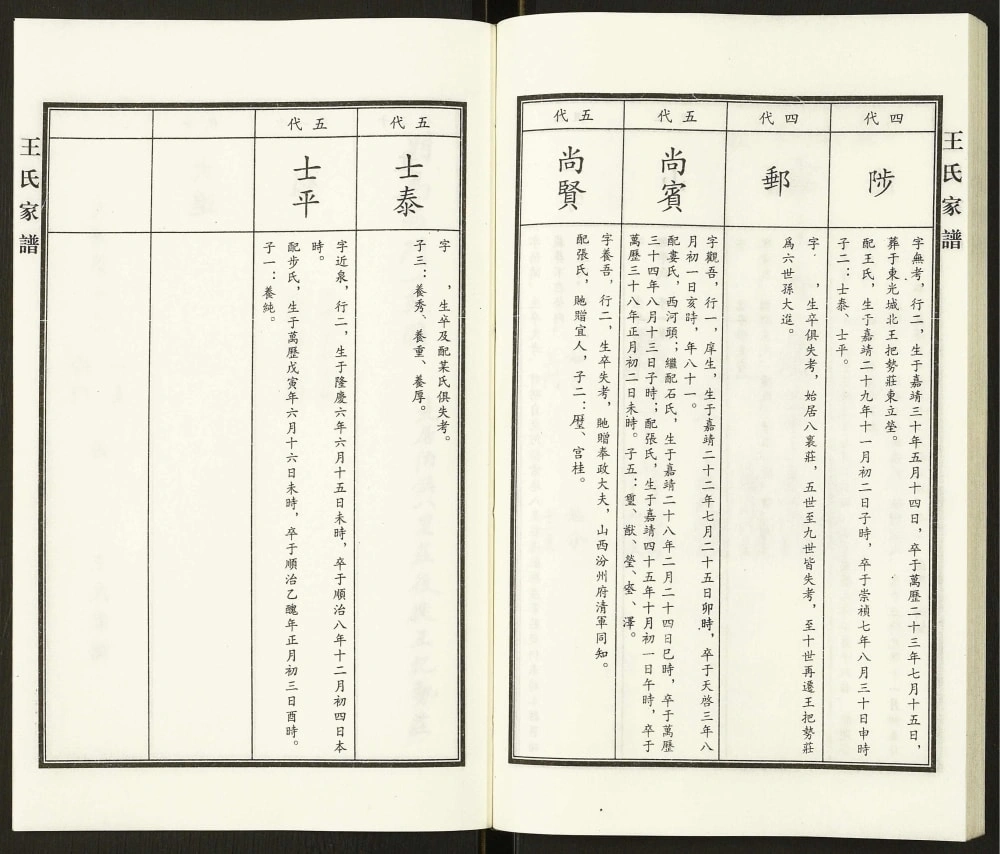 王氏家譜
四代
陟
字無考，行二，生于嘉靖三十年五月十四日，卒于萬歷二十三年七月十五日，
葬于東光城北王把勢莊東立塋。
配王氏，生于嘉靖二十九年十一月初二日子時，卒于崇禎七年八月三十日申時
子二：士泰、士平。
四代
郵
字　　，生卒俱失考，始居八裏莊，五世至九世皆失考，至十世再遷王把勢莊
爲六世孫大進。
五代
尚賓
字觀吾，行一，庠生，生于嘉靖二十二年七月二十五日卯時，卒于天啓三年八
月初一日亥時，年八十一。
配婁氏，西河頭；繼配石氏，生于嘉靖二十八年二月二十四日巳時，卒于萬歷
三十四年八月十三日子時；配張氏，生于嘉靖四十五年十月初一日午時，卒于
萬歷三十八年正月初二日未時。子五：璽、猷、瑩、　、澤。
五代
尚賢
字養吾，行二，生卒失考，貤贈奉政大夫，山西汾州府清軍同知。
配張氏，貤贈宜人，子二：　、宫桂。
五代
士泰
字　　，生卒及配某氏俱失考。
子三：養秀、養重、養厚。
五代
士平
字近泉，行二，生于隆慶六年六月十五日未時，卒于順治八年十二月初四日本
時。
配步氏，生于萬歷戊寅年六月十六日未時，卒于順治乙醜年正月初三日酉時。
子一：養純。
王氏家譜